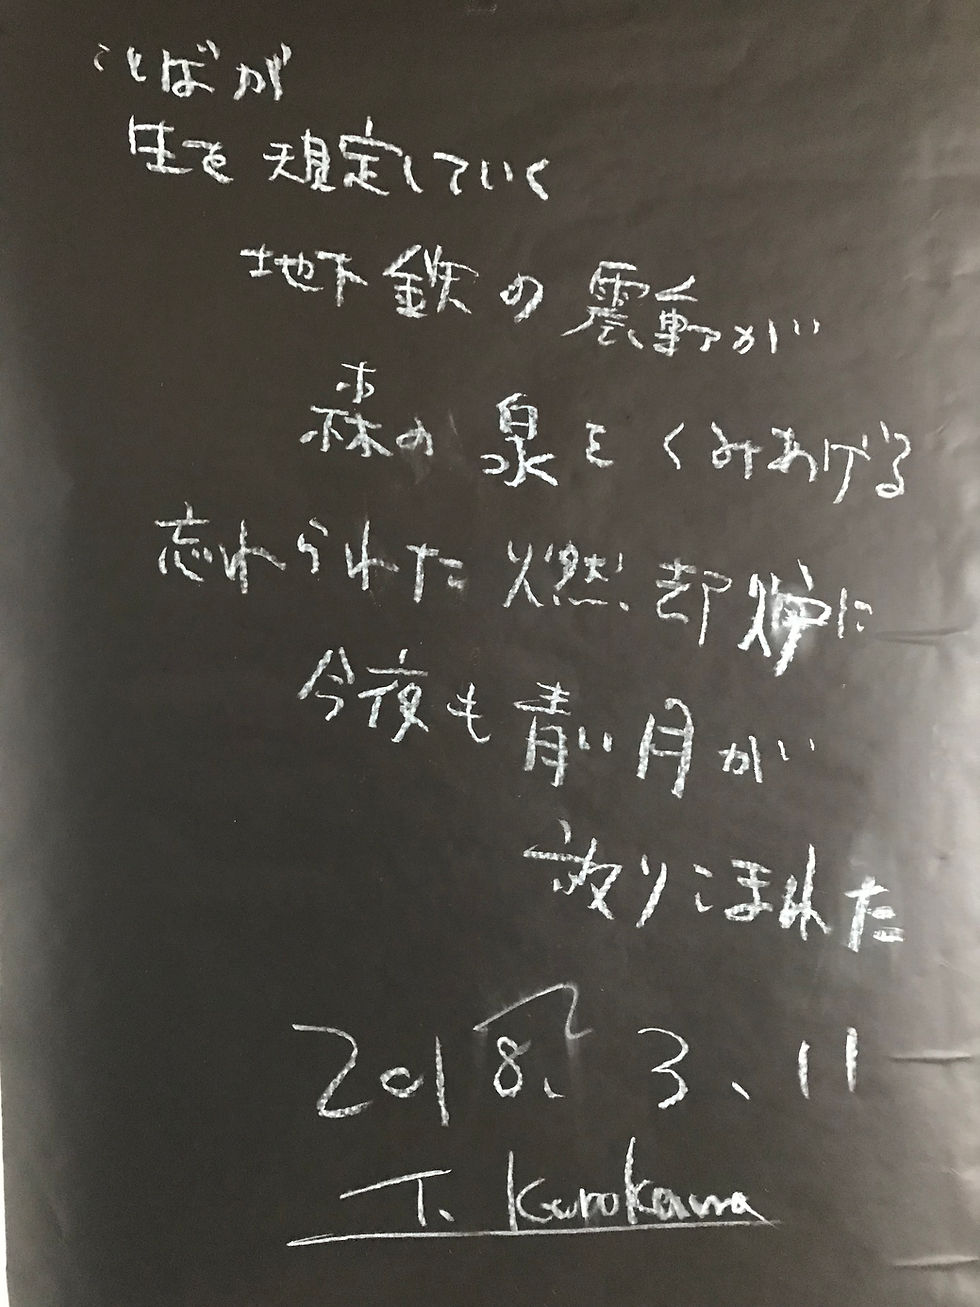 ことばが
生を規定していく
地下鉄の震動が
森の泉をくみあげる
忘れられた燃却炉に
今夜も青い月が
放りこまれた
2018.3.11
T. Kurokawa